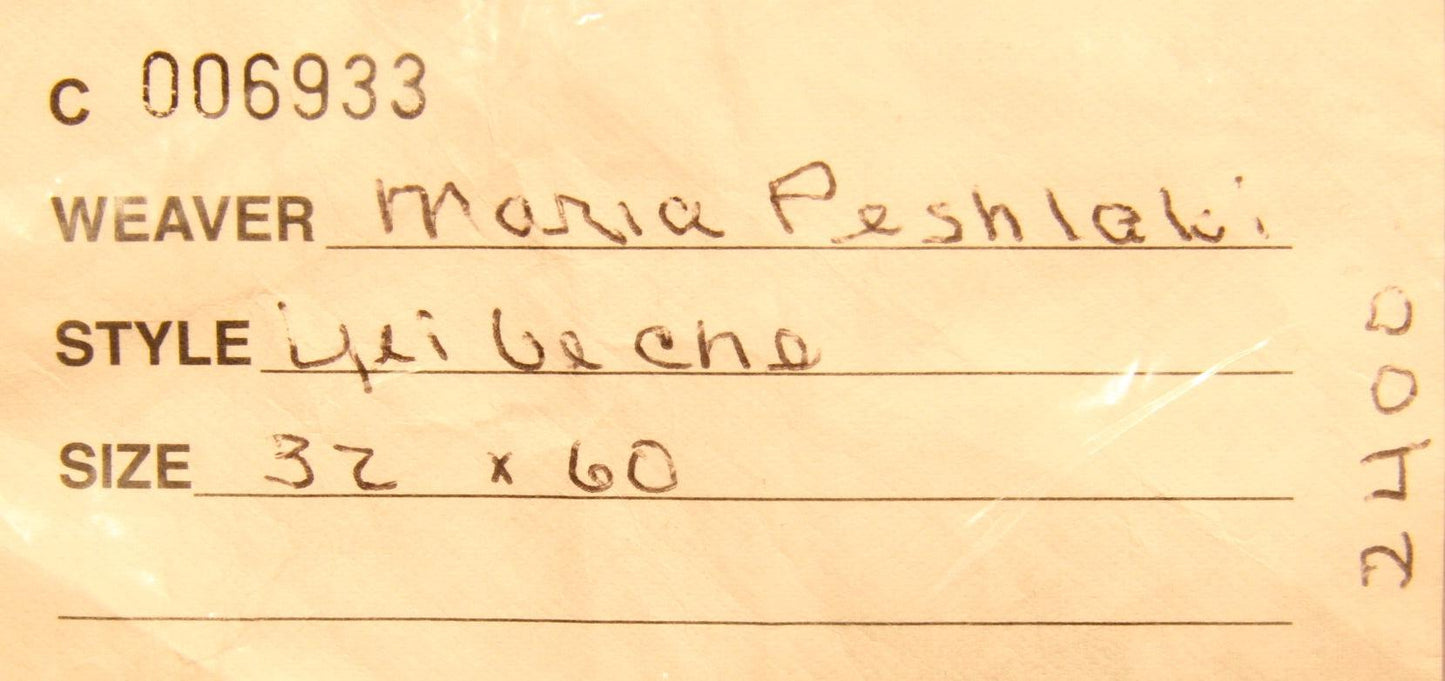 C 006933
WEAVER Maria Peshlaki
STYLE Yei be cho
SIZE 32 x 60
2400